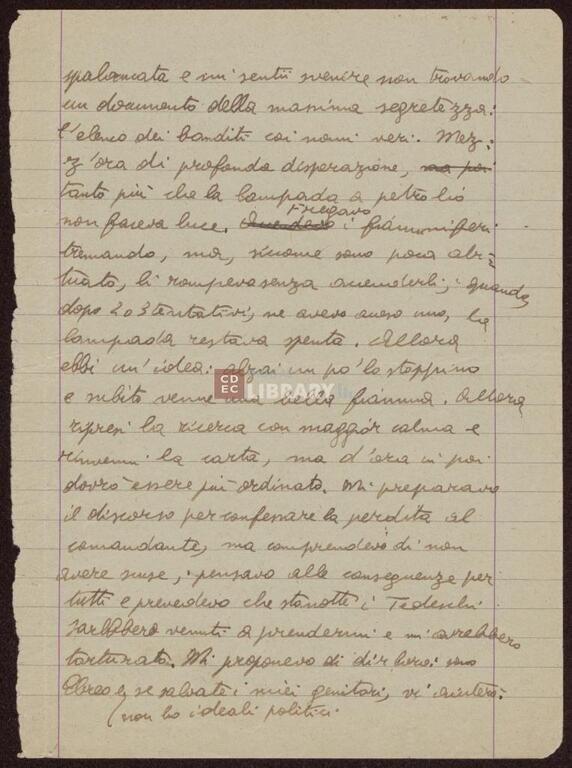 spalancata e mi sentii svenire non trovando
un documento della massima segretezza:
l'elenco dei banditi coi nomi veri. Mez=
z'ora di profonda disperazione, ma poi
tanto più che la lampada a petrolio
Fregavo
non faceva luce. Accendevo i fiammiferi
tremando, ma, siccome sono poco abi=
tuato, li rompevo senza accenderli; quando,
dopo 2 o 3 tentativi, ne avevo acceso uno, la
lampada restava spenta. Allora
ebbi un'idea: alzai un po' lo stoppino
e subito venne una bella fiamma. Allora
ripresi la ricerca con maggior calma e
rinvenni la carta, ma d'ora in poi
dovrò essere più ordinato. Mi preparavo
il discorso per confessare la perdita al
comandante, ma comprendevo di non
avere scuse; pensavo alle conseguenze per
tutti e prevedevo che stanotte i Tedeschi
sarebbero venuti a prendermi e mi avrebbero
torturato. Mi proponevo di dir loro: sono
Ebreo e, se salvate i miei genitori, vi aiuterò:
non ho ideali politici.
CDEC LIBRARY